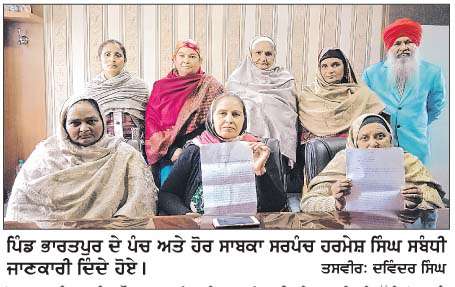 ਪਿੰਡ ਭਾਰਤਪੁਰ ਦੇ ਪੰਚ ਅਤੇ ਹੋਰ ਸਾਬਕਾ ਸਰਪੰਚ ਹਰਮੇਸ਼ ਸਿੰਘ ਸਬੰਧੀ
ਜਾਣਕਾਰੀ ਦਿੰਦੇ ਹੋਏ। ਤਸਵੀਰ: ਦਵਿੰਦਰ ਸਿੰਘ